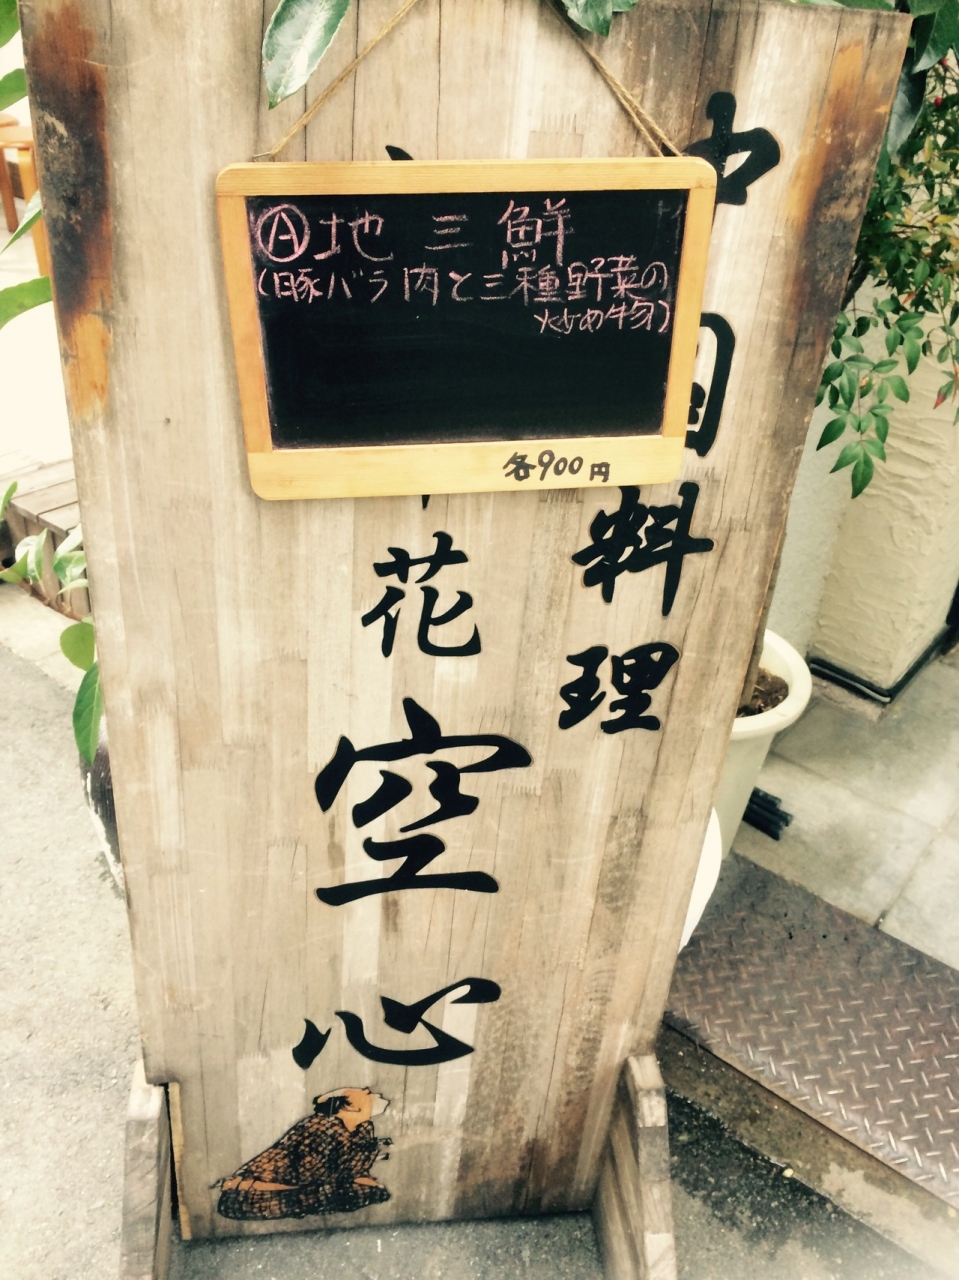 Ⓐ地三鮮
(豚バラ肉と三種野菜の
炒め物)
各900円
中国料理
花空心